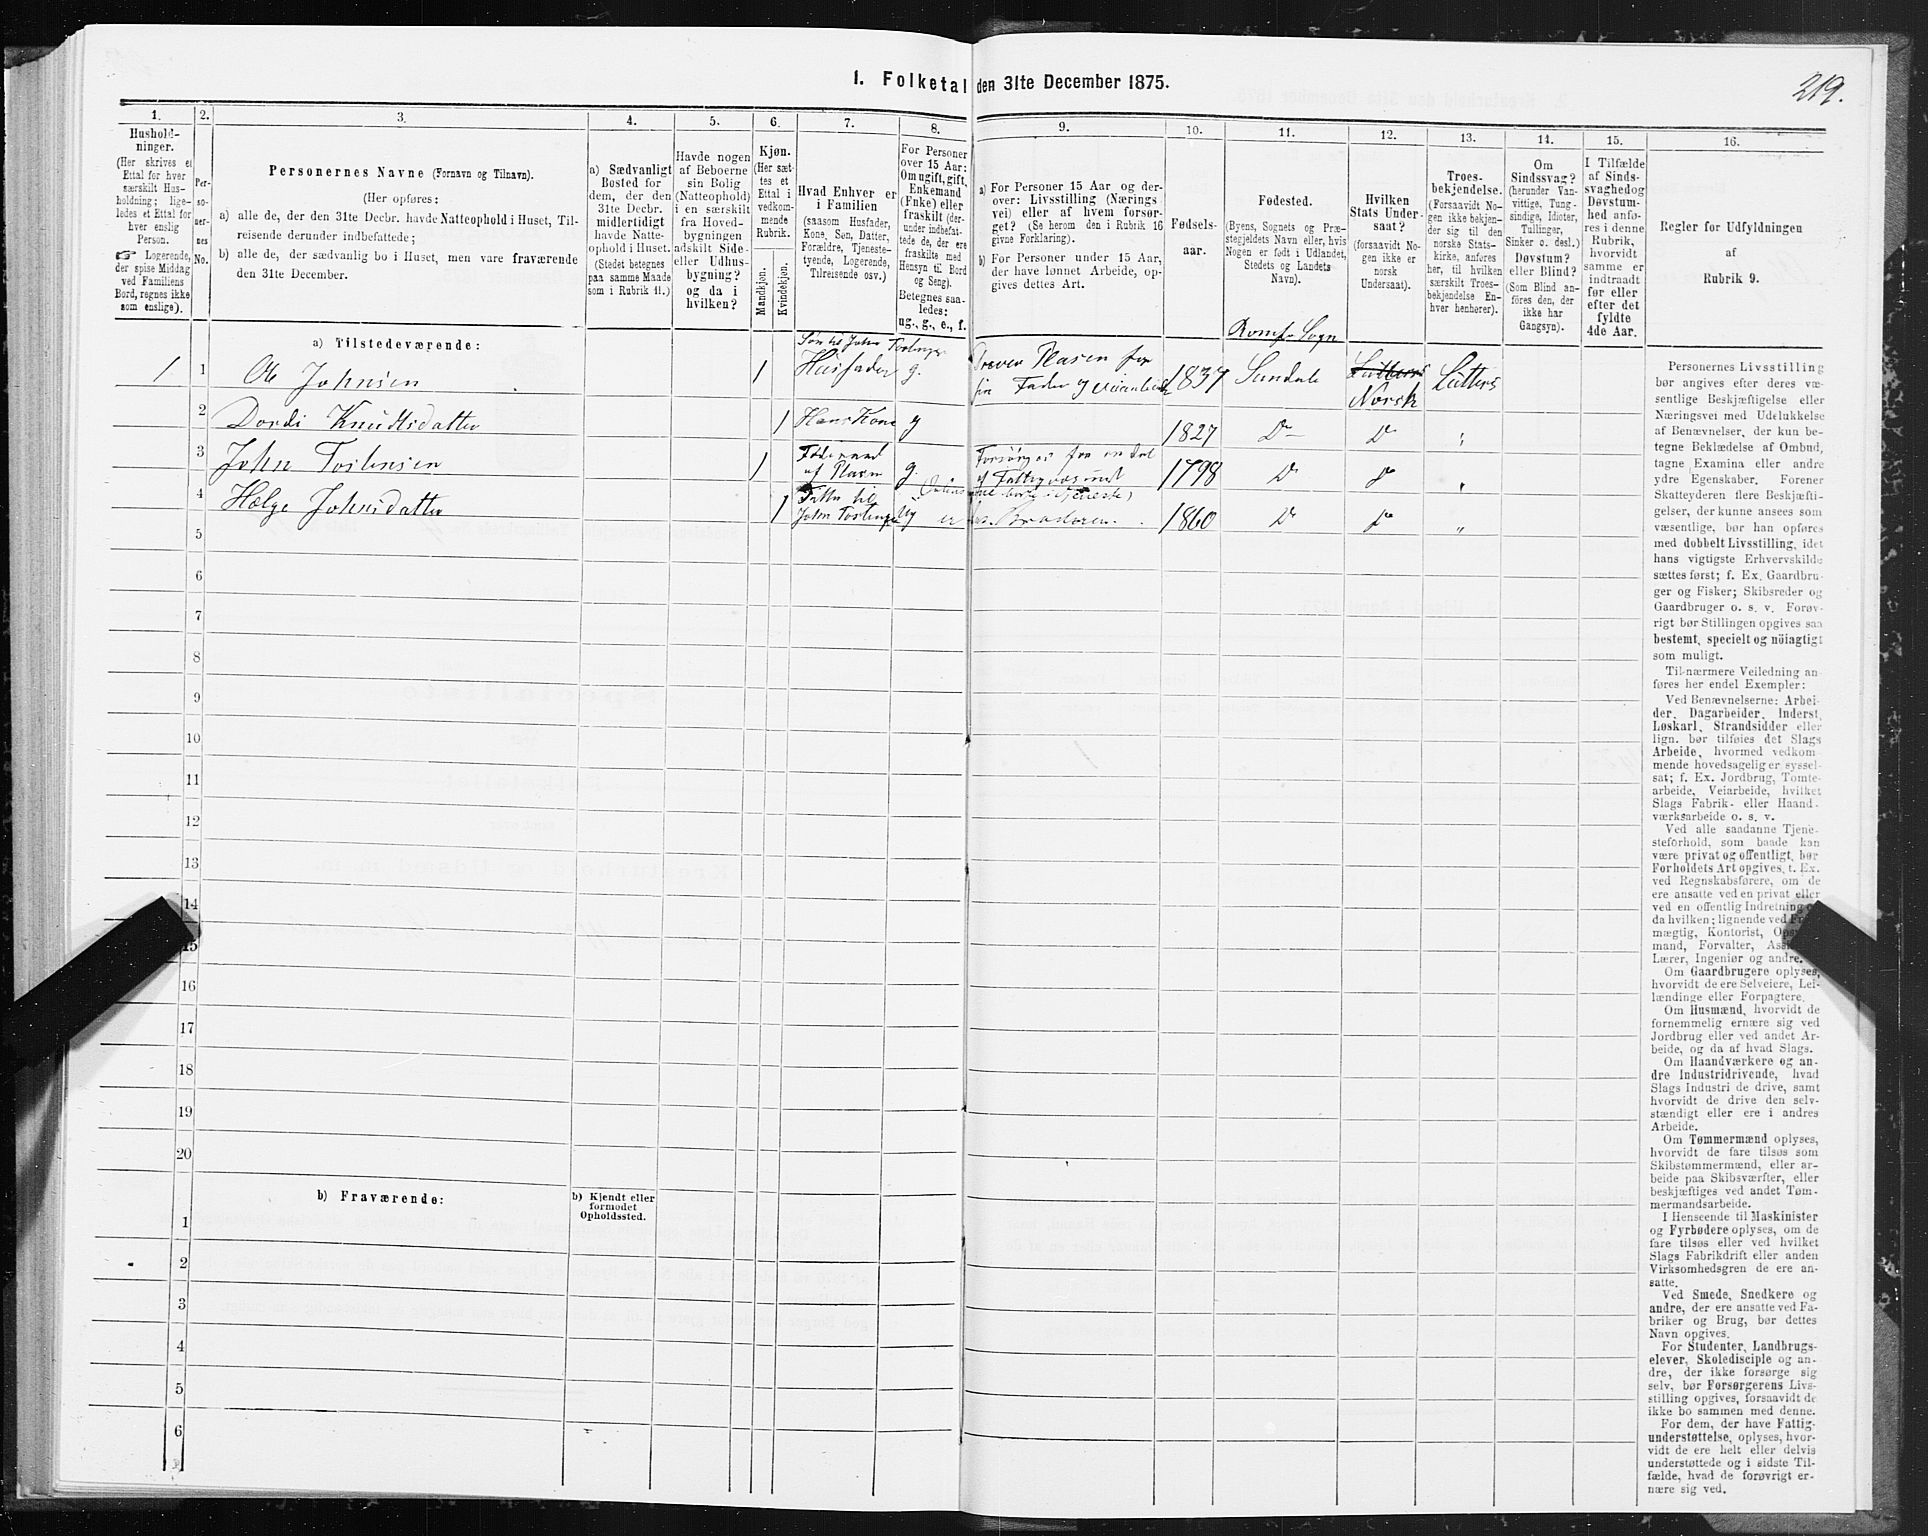 1. Folketal den 31te December 1875.
219.
1.
Hushold-
ninger.
(Her skrives et
Ettal for hver
særskilt Hus-
holdning; lige-
ledes et Ettal for
hver enslig
Person.
☞ Logerende,
der spise Middag
ved Familiens
Bord, regnes ikke
som enslige).
2.
Per-
so-
ner-
nes
No.
3.
Personernes Navne (Fornavn og Tilnavn).
(Her opføres:
a) alle de, der den 31te Decbr. havde Natteophold i Huset, Til-
reisende derunder indbefattede;
b) alle de, der sædvanlig bo i Huset, men vare fraværende
den 31te December.
4.
a) Sædvanligt
Bosted for
dem, der den
31te Decbr.
midlertidigt
havde Natte-
ophold i Huset.
(Stedet betegnes
paa samme Maade
som i Rubrik 11.)
5.
Havde nogen
af Beboerne
sin Bolig
(Natteophold)
i en særskilt
fra Hoved-
bygningen
adskilt Side-
eller Udhus-
bygning?
og da i
hvilken?
6.
Kjøn.
(Her sæt-
tes et
Ettal i
vedkom-
mende
Rubrik.
Mandkjøn.
Kvindekjøn.
7.
Hvad Enhver er
i Familien
(saasom Husfader,
Kone, Søn, Datter,
Forældre, Tjeneste-
tyende, Logerende,
Tilreisende osv.)
8.
For Personer
over 15 Aar:
Om ugift, gift,
Enkemand
(Enke) eller
fraskilt (der-
under indbefat-
tede de, der ere
fraskilte med
Hensyn til Bord
og Seng).
Betegnes saa-
ledes:
ug., g., e., f.
9.
a) For Personer 15 Aar og der-
over: Livsstilling (Nærings
vei) eller af hvem forsør-
get? (Se herom den i Rubrik 16
givne Forklaring).
b) For Personer under 15 Aar,
der have lønnet Arbeide, op-
gives dettes Art.
10.
Fødsels-
aar.
11.
Fødested.
(Byens, Sognets og Præ-
stegjeldets Navn eller, hvis
Nogen er født i Udlandet,
Stedets og Landets
Navn).
12.
Hvilken
Stats Under-
saat?
(forsaavidt No-
gen ikke er
norsk
Undersaat).
13.
Troes-
bekjendelse.
(Forsaavidt No-
gen ikke bekjen-
der sig til den
norske Stats-
kirke, anføres
her, til hvilken
særskilt Troes-
bekjendelse En-
hver henhører).
14.
Om
Sindssvag?
(herunder Van-
vittige, Tung-
sindige, Idioter,
Sinker o. desl.)
Døvstum?
eller Blind?
(Som Blind an-
føres den, der
ikke har
Gangsyn).
15.
I Tilfælde
af Sinds-
svaghed og
Døvstum-
hed anfø-
res i denne
Rubrik,
hvorvidt
samme er
indtraadt
før eller
efter det
fyldte
4de Aar.
16.
Regler for Udfyldningen
af
Rubrik 9.
a) Tilstedeværende:
Romf. Sogn
Søn til John Tostens
1 1 Ole Johnsen 1 Husfader g. Plasen for
sin Fader og 1837 Sundale Lutters Norsk Lutters
2 Dordi Knudtsdatter 1 Hans Kone g 1827 D— D „
3 John Tostensen 1 Føderaad af Plasen g. Forsørges for en Del
af Fattigvæsenet 1798 D D „
4 Helge Johnsdatter 1 Datter til John Tostens ug er hos Broderen. 1860 D D „
5
6
7
8
9
10
11
12
13
14
15
16
17
18
19
20
b) Fraværende:
b) Kjendt eller
formodet
Opholdssted.
1
2
3
4
5
6
Personernes Livsstilling
bør angives efter deres væ-
sentlige Beskjæftigelse eller
Næringsvei med Udelukkelse
af Benævnelser, der kun be-
tegne Beklædelse af Ombud,
tagne Examina eller andre
ydre Egenskaber. Forener
Skatteyderen flere Beskjæfti-
gelser, der kunne ansees som
væsentlige, bør han opføres
med dobbelt Livsstilling, idet
hans vigtigste Erhvervskilde
sættes først; f. Ex. Gaardbru-
ger og Fisker; Skibsreder og
Gaardbruger o. s. v. Forøv-
rigt bør Stillingen opgives saa
bestemt, specielt og nöiagtigt
som muligt.
Til nærmere Veiledning an-
føres her endel Exempler:
Ved Benævnelserne: Arbei-
der, Dagarbeider, Inderst,
Løskarl, Strandsidder eller
lign. bør tilføies det Slags
Arbeide, hvormed vedkom-
mende hovedsagelig er syssel-
sat; f. Ex. Jordbrug, Tomte-
arbeide, Veiarbeide, hvilket
Slags Fabrik- eller Haand-
værksarbeide o. s. v.
Ved alle saadanne Tjene-
steforhold, som baade kan
være privat og offentligt, bør
Forholdets Art opgives, t. Ex.
ved Regnskabsførere, om de
ere ansatte ved en privat eller
ved en offentlig Indretning og
da hvilken; lignende ved
mægtig, Kontorist,
mand, Forvalter,
Lærer, Ingeniør og andre.
Om Gaardbrugere oplyses,
hvorvidt de ere Selveiere, Lei-
lændinge eller Forpagtere.
Om Husmænd, hvorvidt de
fornemmelig ernære sig ved
Jordbrug eller ved andet Ar-
beide, og da af hvad Slags.
Om Haandværkere og an-
dre Industridrivende, hvad
Slags Industri de drive, samt
hvorvidt de drive den selv-
stændigt eller ere i andres
Arbeide.
Om Tømmermænd oplyses,
hvorvidt de fare tilsøs som
Skibstømmermænd, eller ar-
beide paa Skibsværfter, eller
beskjæftiges ved andet Tøm-
mermandsarbeide.
I Henseende til Maskinister
og Fyrbødere oplyses, om de
fare tilsøs eller ved hvilket
Slags Fabrikdrift eller anden
Virksomhedsgren de ere an-
satte.
Ved Smede, Snedkere og
andre, der ere ansatte ved Fa-
briker og Brug, bør dettes
Navn opgives.
For Studenter, Landbrugs-
elever, Skoledisciple og an-
dre, der ikke forsørge sig
selv, bør Forsørgerens Livs-
stilling opgives, forsaavidt de
ikke bo sammen med denne.
For dem, der have Fattig-
understøttelse, oplyses, hvor-
vidt de ere helt eller delvis
understøttede og i sidste Til-
fælde, hvad de forøvrigt er-
nære sig ved.